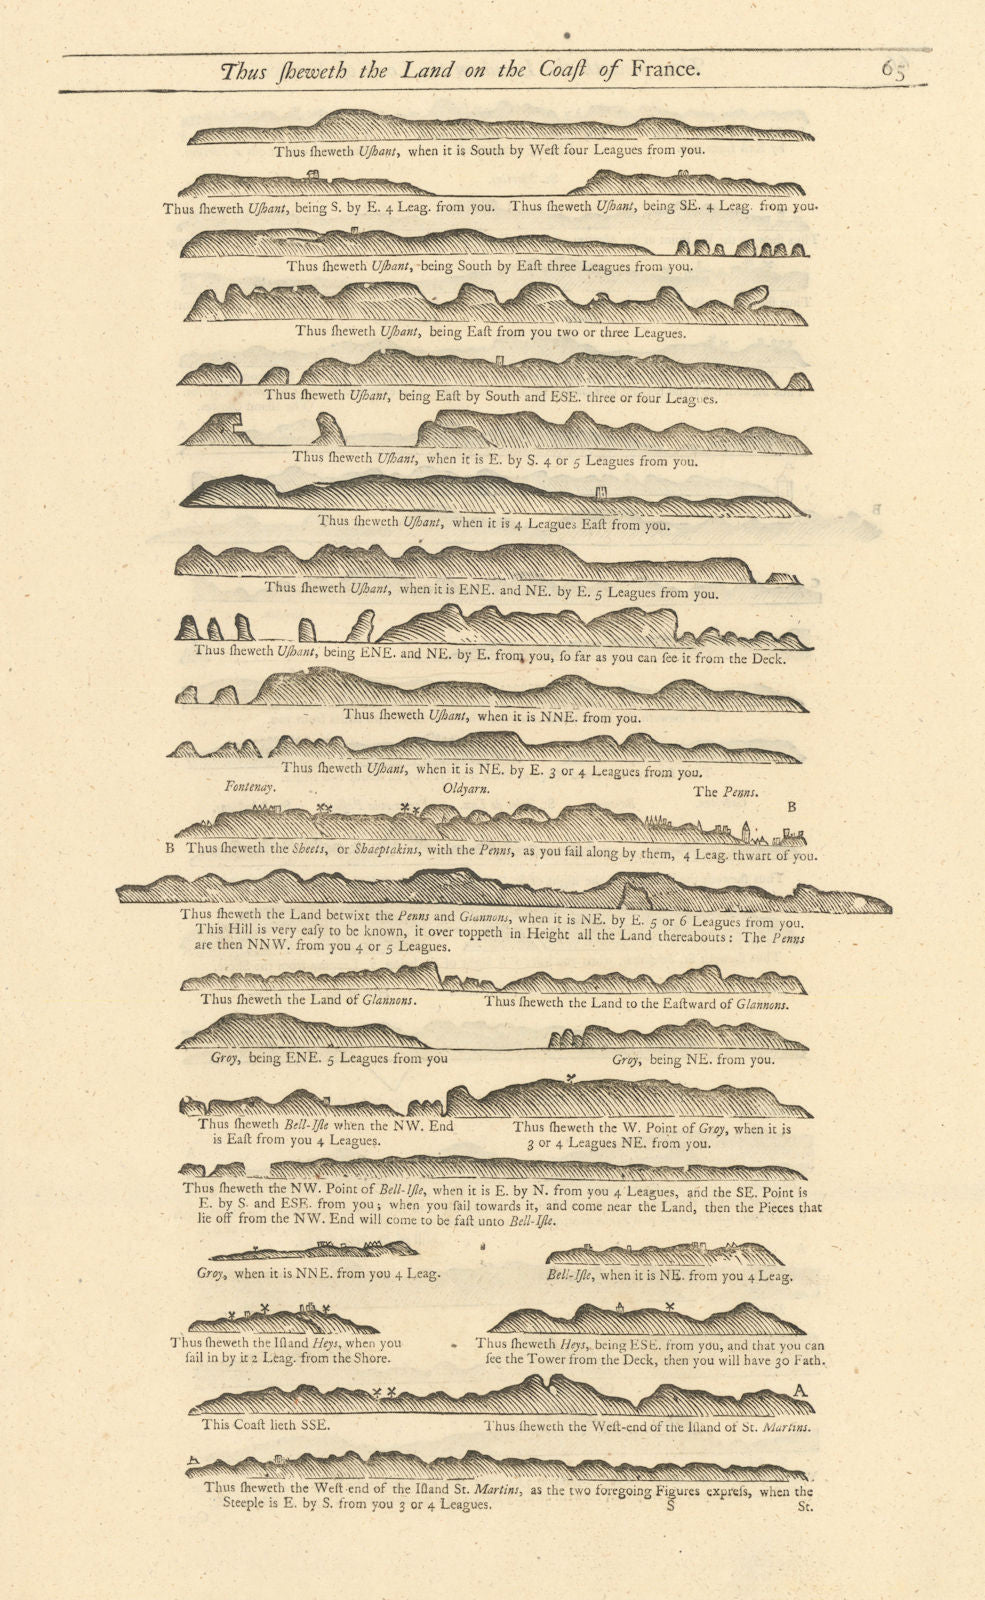 Thus ſheweth the Land on the Coaſt of France. 65
Thus ſheweth Uſhant, when it is South by Weſt four Leagues from you.
Thus ſheweth Uſhant, being S. by E. 4 Leag. from you. Thus ſheweth Uſhant, being SE. 4 Leag. from you.
Thus ſheweth Uſhant, being South by Eaſt three Leagues from you.
Thus ſheweth Uſhant, being Eaſt from you two or three Leagues.
Thus ſheweth Uſhant, being Eaſt by South and ESE. three or four Leagues.
Thus ſheweth Uſhant, when it is E. by S. 4 or 5 Leagues from you.
Thus ſheweth Uſhant, when it is 4 Leagues Eaſt from you.
Thus ſheweth Uſhant, when it is ENE. and NE. by E. 5 Leagues from you.
Thus ſheweth Uſhant, being ENE. and NE. by E. from you, ſo far as you can ſee it from the Deck.
Thus ſheweth Uſhant, when it is NNE. from you.
Thus ſheweth Uſhant, when it is NE. by E. 3 or 4 Leagues from you.
Fontenay. Oldyarn. The Penns.
B
B Thus ſheweth the Sheets, or Shaeptakins, with the Penns, as you ſail along by them, 4 Leag. thwart of you.
Thus ſheweth the Land betwixt the Penns and Glannons, when it is NE. by E. 5 or 6 Leagues from you.
This Hill is very eaſy to be known, it over toppeth in Height all the Land thereabouts: The Penns
are then NNW. from you 4 or 5 Leagues.
Thus ſheweth the Land of Glannons. Thus ſheweth the Land to the Eaſtward of Glannons.
Groy, being ENE. 5 Leagues from you Groy, being NE. from you.
Thus ſheweth Bell-Iſle when the NW. End
is Eaſt from you 4 Leagues.
Thus ſheweth the W. Point of Groy, when it is
3 or 4 Leagues NE. from you.
Thus ſheweth the NW. Point of Bell-Iſle, when it is E. by N. from you 4 Leagues, and the SE. Point is
E. by S. and ESE. from you; when you ſail towards it, and come near the Land, then the Pieces that
lie off from the NW. End will come to be faſt unto Bell-Iſle.
Groy, when it is NNE. from you 4 Leag. Bell-Iſle, when it is NE. from you 4 Leag.
Thus ſheweth the Iſland Heys, when you
ſail in by it 2 Leag. from the Shore.
Thus ſheweth Heys, being ESE. from you, and that you can
ſee the Tower from the Deck, then you will have 30 Fath.
A
This Coaſt lieth SSE. Thus ſheweth the Weſt-end of the Iſland of St. Martins.
A
Thus ſheweth the Weſt-end of the Iſland St. Martins, as the two foregoing Figures expreſs, when the
Steeple is E. by S. from you 3 or 4 Leagues. S St.